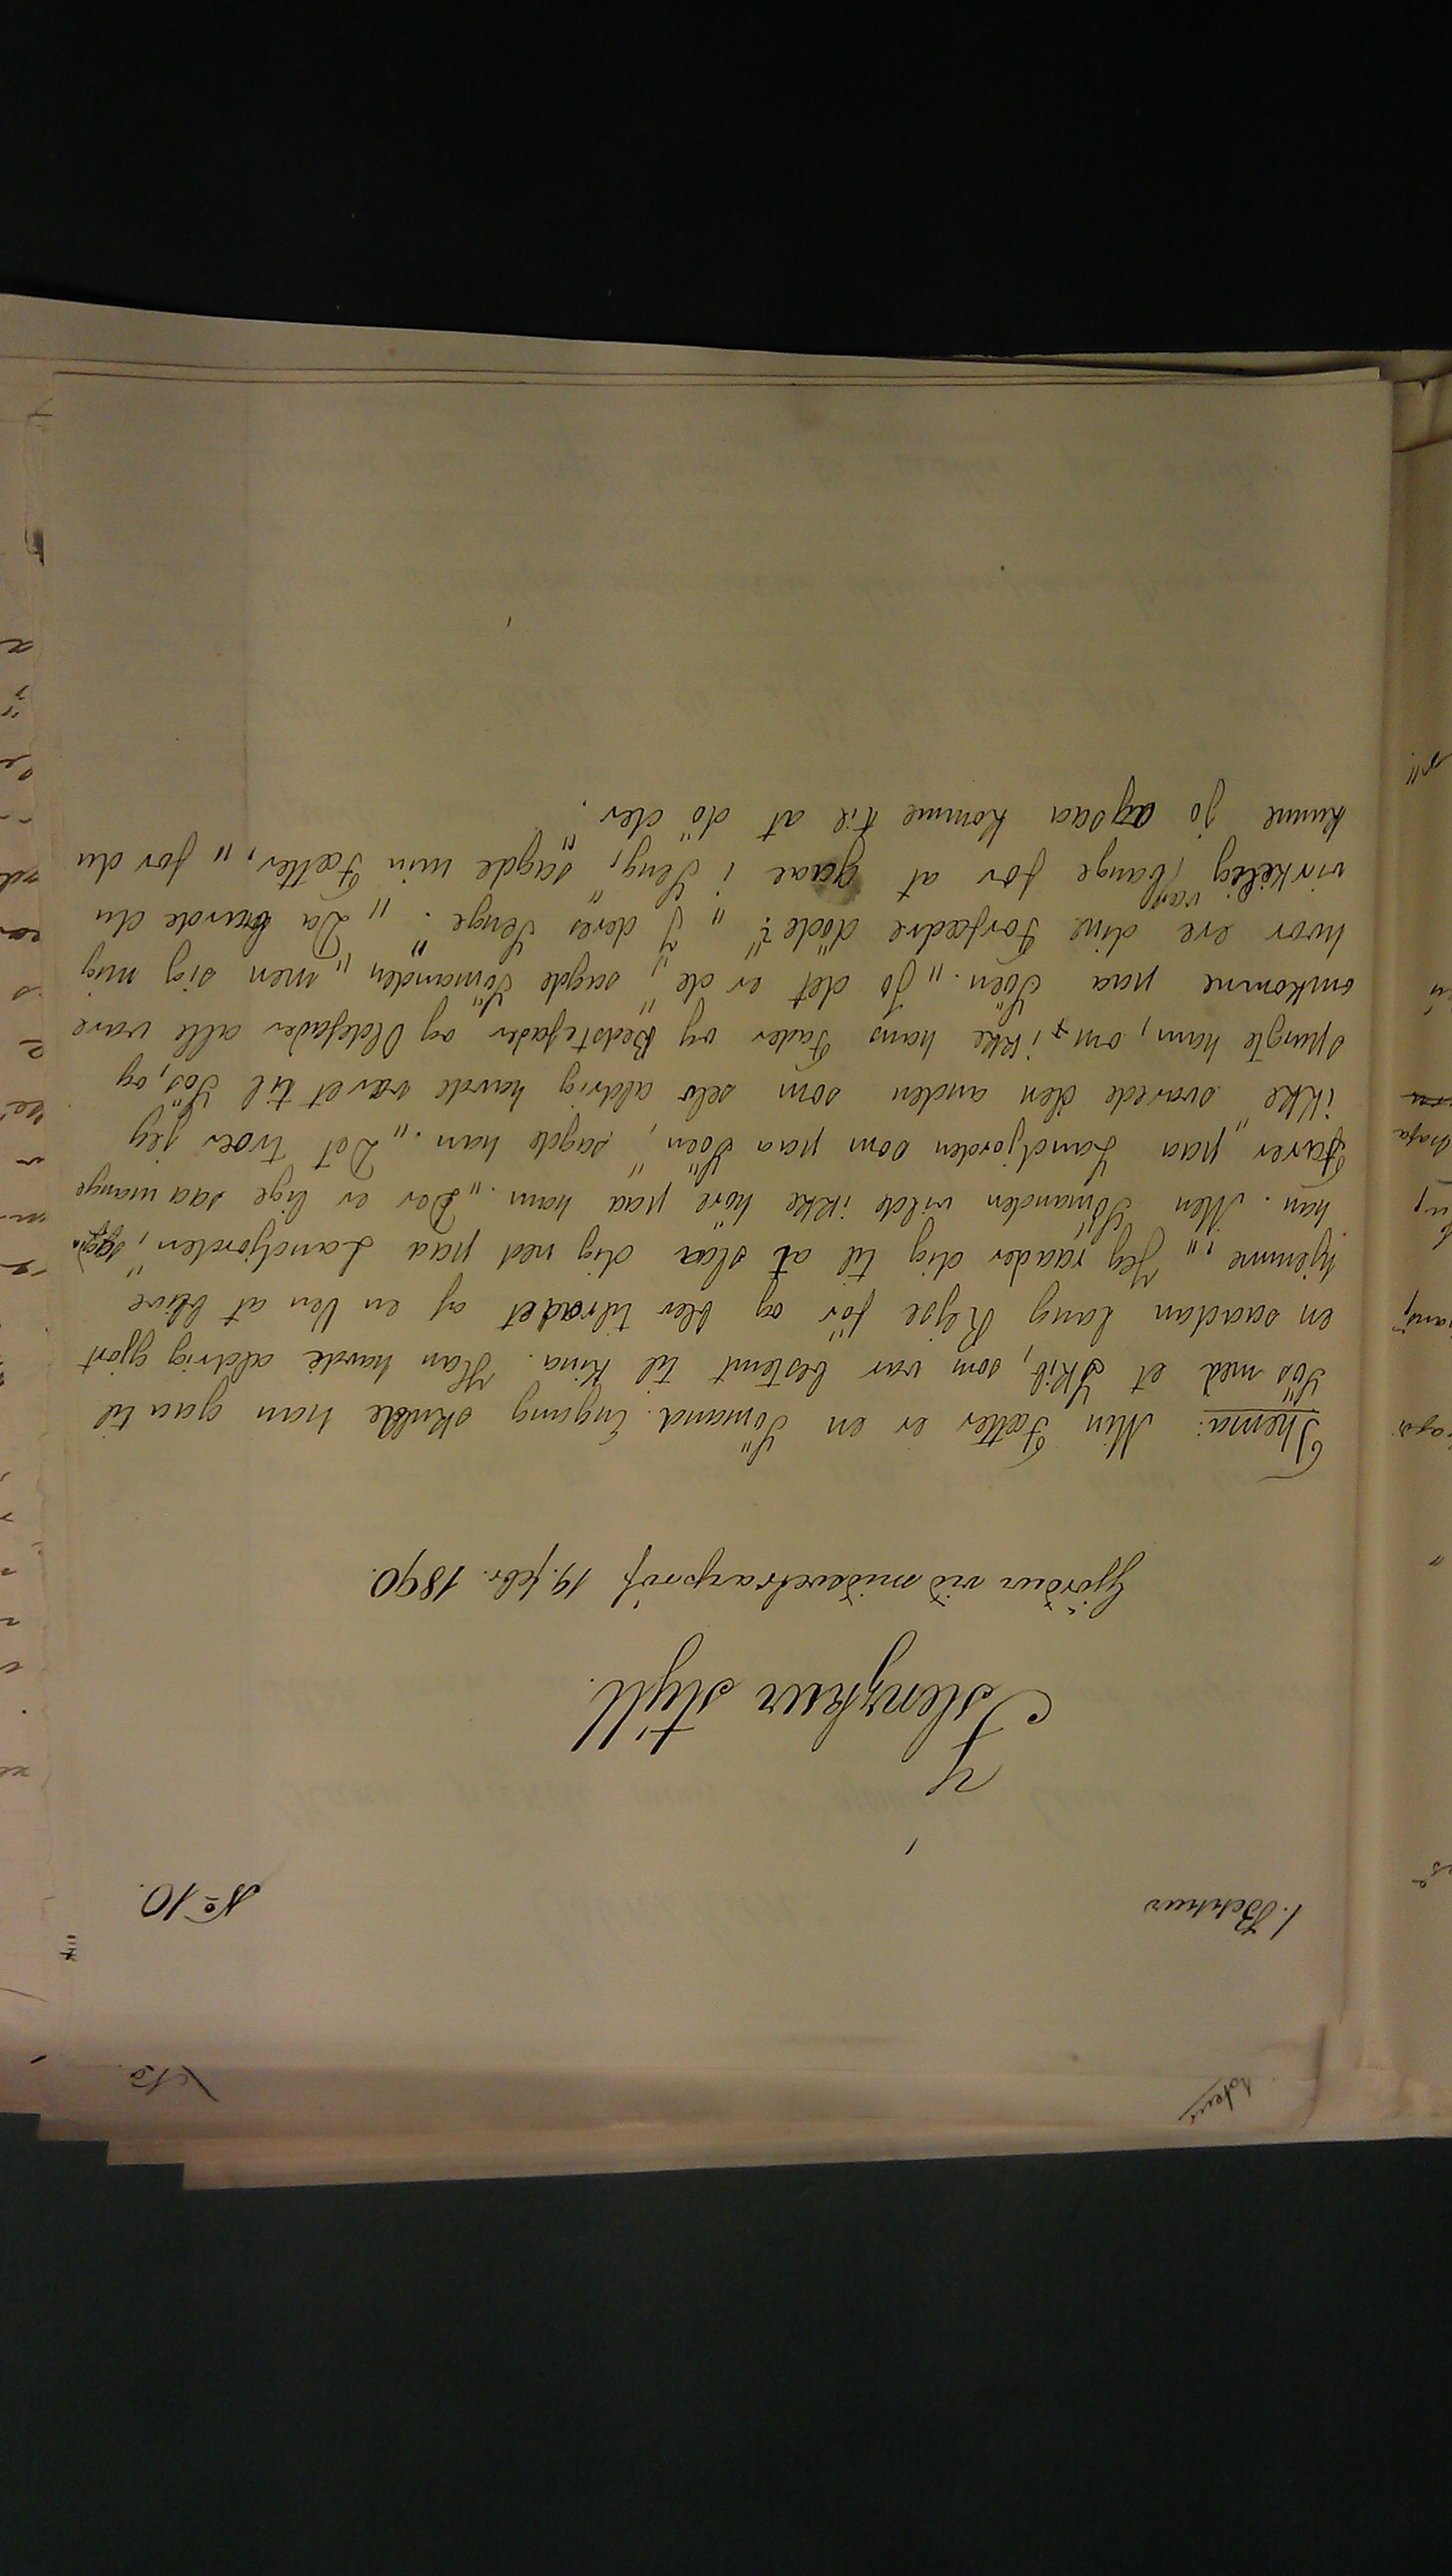 1. Bekkur
No 10.
Íslenzkur stýll.
Gjörður við miðsvetrarpróf 19. febr. 1890.
Thema: Min Fætter er en Sömand. Engang skulde han gaa til
Sös med et Skib, som var bestemt til Kina. Han havde aldrig gjört
en saadan lang Rejse för og blev tilraadet af en Ven at blive
hjemme. „Jeg raader dig til at slaa dig ned paa Landjorden“, sagde
han. Men Sömanden vilde ikke höre paa ham. „Der er lige saa mange
Farer „paa Landjorden som paa Söen“, sagde han. „Det troer jeg
ikke“ svarede den anden som selv aldrig havde været til Sös, og
spurgte ham, om ikke hans Fader og Bedstefader og Oldefader alle vare
omkomne paa Söen. „Jo det er de“, sagde Sömanden, „men sig mig
hvor ere dine Forfædre döde?“ „I deres Senge“. „Da burde du
virkelig være bange for at gaae i Seng,“ sagde min Fætter, „for du
kunne jo ogsaa komme til at dö der.